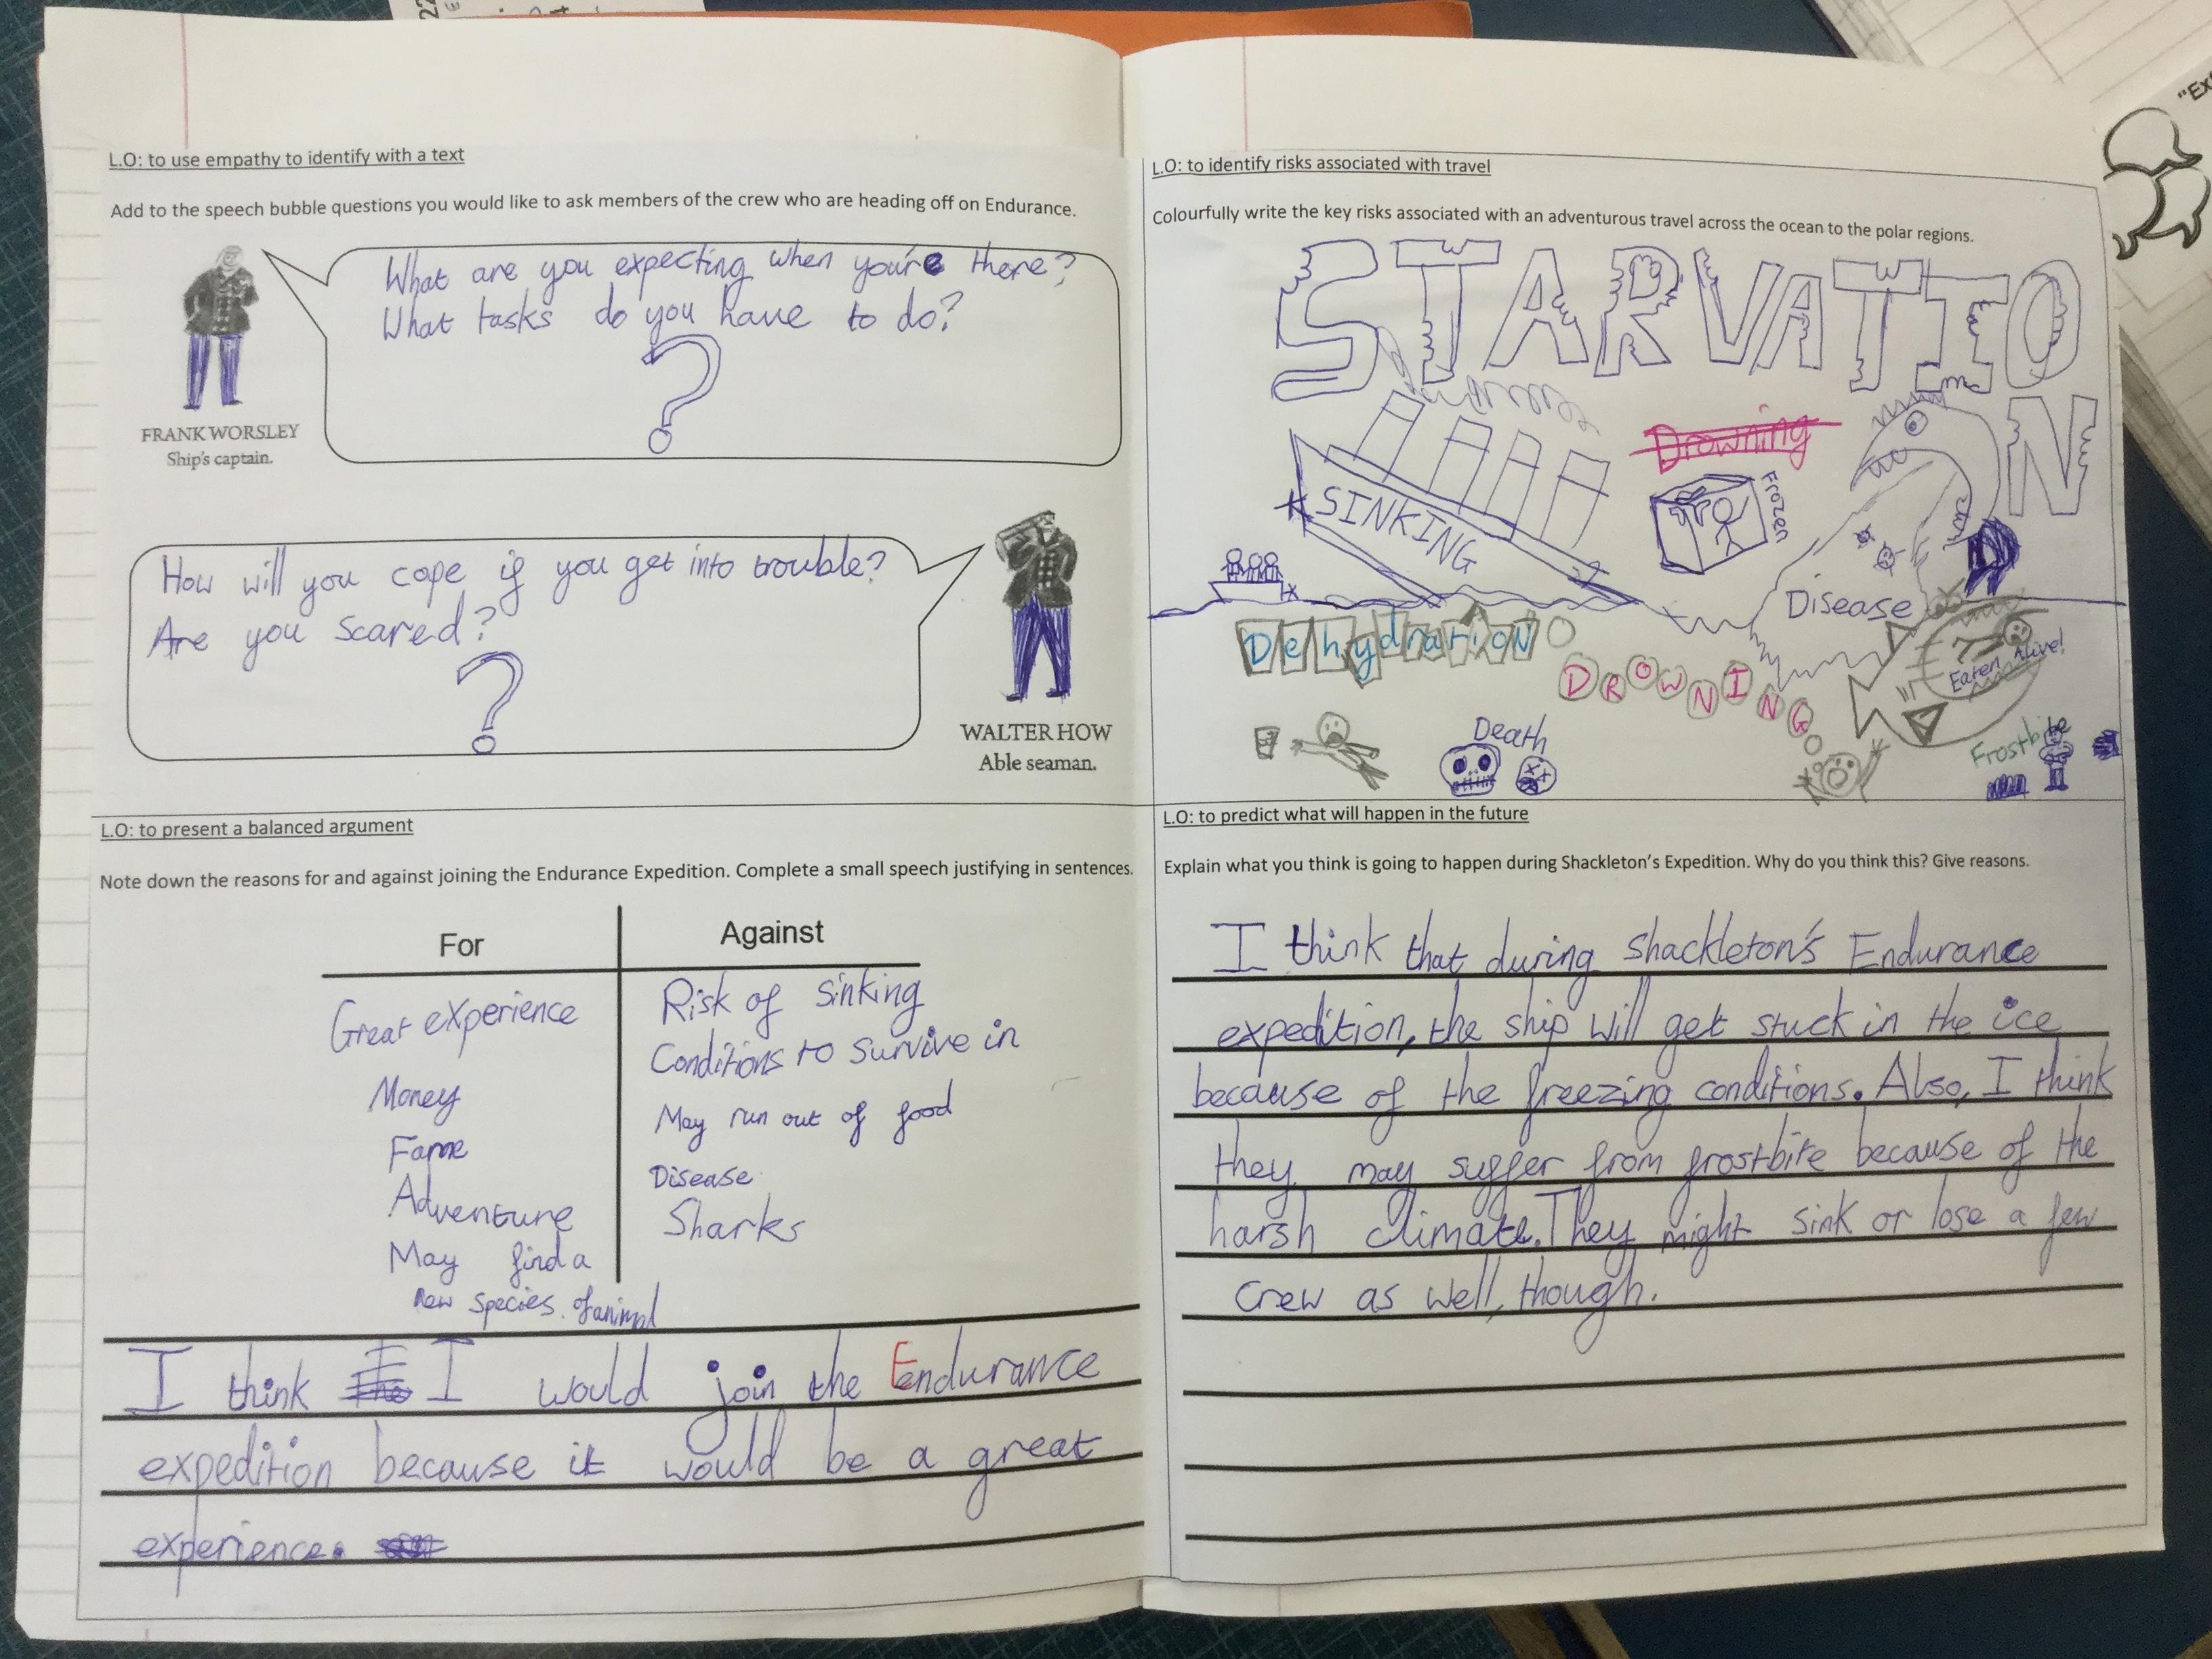 L.O: to use empathy to identify with a text
Add to the speech bubble questions you would like to ask members of the crew who are heading off on Endurance.
What are you expecting when you're there?
What tasks do you have to do?
?
FRANK WORSLEY
Ship's captain.
How will you cope if you get into trouble?
Are you scared?
?
WALTER HOW
Able seaman.
L.O: to present a balanced argument
Note down the reasons for and against joining the Endurance Expedition. Complete a small speech justifying in sentences.
For
Great experience
Money
Fame
Adventure
May find a
new species of animal
Against
Risk of sinking
Conditions to survive in
May run out of food
Disease
Sharks
I think I would join the Endurance
expedition because it would be a great
experience.
L.O: to identify risks associated with travel
Colourfully write the key risks associated with an adventurous travel across the ocean to the polar regions.
STARVATIO
N
Drowning
Frozen
SINKING
Disease
Dehydration
DROWNING
Eaten Alive!
Death
Frostbite
L.O: to predict what will happen in the future
Explain what you think is going to happen during Shackleton's Expedition. Why do you think this? Give reasons.
I think that during Shackleton's Endurance
expedition, the ship will get stuck in the ice
because of the freezing conditions. Also, I think
they may suffer from frostbite because of the
harsh climate. They might sink or lose a few
crew as well, though.
"Ex